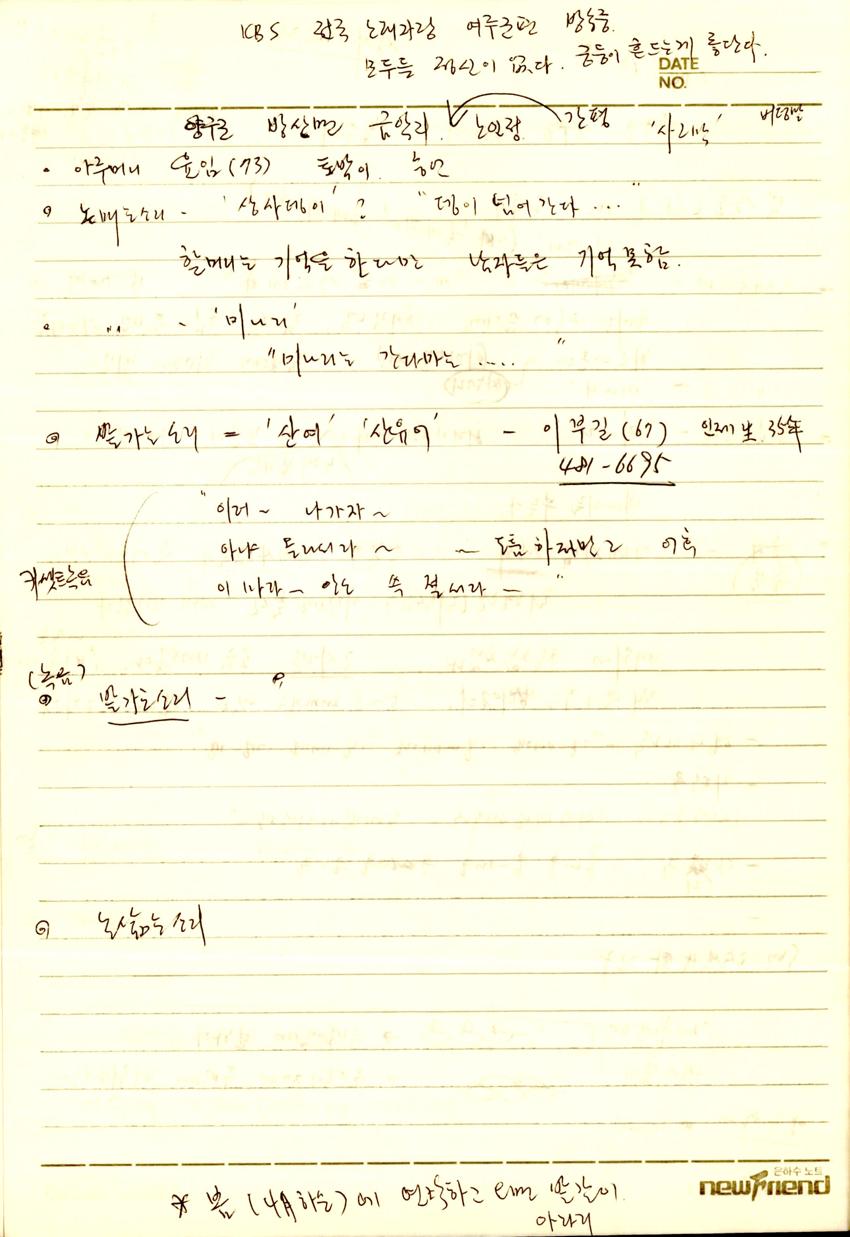 KBS 전국 노래자랑 여주군편 방송중.
모두들 정신이 없다. 궁둥이 흔드는게 통단다.
DATE
NO.
양구군 방산면 금악리 노인정 간평 '사리막'
• 아주머니 윤임(73) 토박이. 농민
• 논매는소리 - '상사뎅이'? "뎅이 넘어간다 ..."
할머니는 기억을 한다만 남자들은 기억 못함.
• 〃 - '미나리'
"미나리는 간다마는 ....."
밭가는소리 = '산여' '산유어' - 이부길(67) 인제生 35年
481-6695
"이러~ 나가자~
아냐 돌다서라~ ~ 하지만고 어휘
카셋트녹음
이 마라~ 안소 쏙 절서라~ "
(녹음)
밭가는소리 -
논삶는소리
은하수 노트
newfriend
* 봄(4月하순)에 연락하고 밭갈이.
아라리